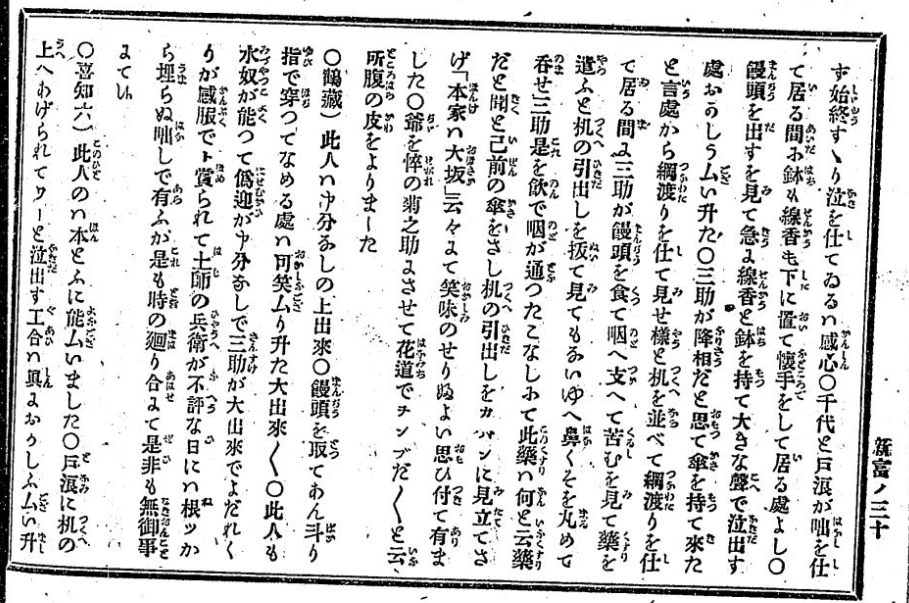 ず始終すゝり泣を仕てゐるハ感心〇千代と戸浪が咄を仕
て居る間お鉢も線香も下に置て懐手をして居る處よし〇
饅頭を出すを見て急よ線香と鉢を持て大きな聲で泣出す
處おかしう厶い升た〇三助が降相だと思て傘を持て來た
と言處から綱渡りを仕て見せ様と机を並べて綱渡りを仕
て居る間よ三助が饅頭を食て咽へ支へて苦むを見て藥を
遣ふと机の引出しを抜て見てもあいゆへ鼻くそを丸めて
呑せ三助是を飲で咽が通つたこなしふて此藥ハ何と云藥
だと聞と已前の傘をさし机の引出しをカバンに見立てさ
げ「本家ハ大坂」云々よて笑味のせりぬよい思ひ付て有ま
した〇爺を悴の菊之助よさせて花道でチンプだ〱と云
所腹の皮をよりました
〇鶴藏）此人ハ申分あしの上出來〇饅頭を取てあん斗り
指で穿つてなめる處ハ可笑厶り升た大出來〱〇此人も
水奴が能つて僞迎が申分なしで三助が大出來でよだれく
りが感服でト賞られて土師の兵衛が不評な日にハ根ッか
ら埋らぬ咄しで有ふが是も時の廻り合よて是非も無御事
よてし
〇喜知六）此人のハ本とふに能厶いました〇戸浪に机の
上へわげられてワーと泣出す工合ハ眞よおかしふ厶い升
新富ノ三十